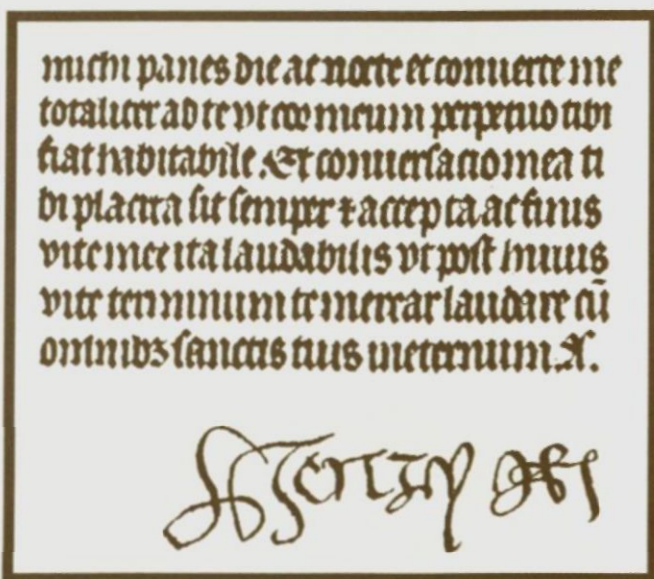 michi panes die ac nocte et conuerte me
totaliter ad te vt cor meum perpetuo tibi
fiat habitabile. Et conuersacio mea ti
bi placita sit semper ⁊ accepta ac finis
vite mee ita laudabilis vt post huius
vite terminum te merear laudare cū
omnibꝫ sanctis tuis ineternum. A.